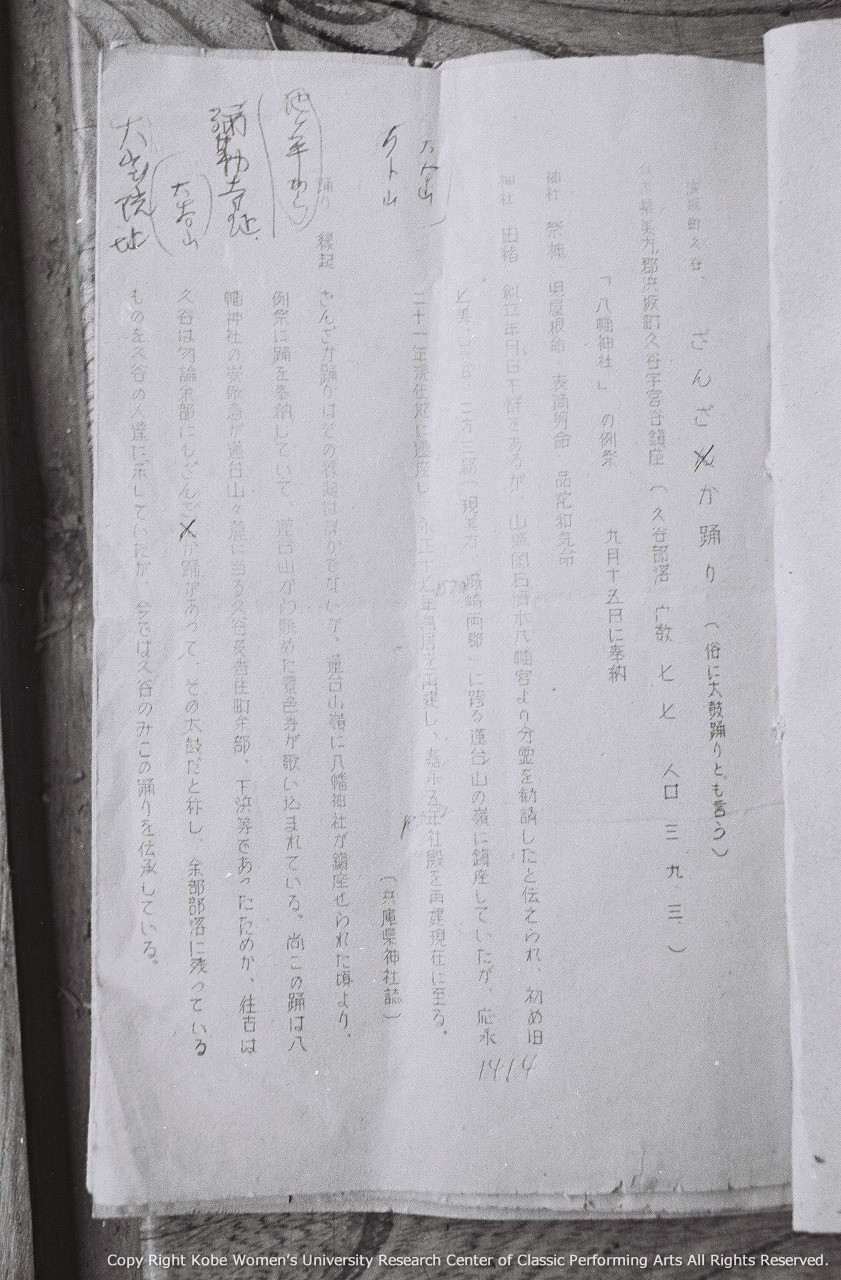 浜坂町久谷、 ざんざか踊り (俗に太鼓踊りとも言う)
兵庫県美方郡浜坂町久谷字宮谷鎮座 (久谷部落 戸数 七七 人口 三九三)
「八幡神社」の例祭 九月十五日に奉納
神社 祭神 旧屋根命 表筒男命 品陀和気命
神社 由緒 創立年月日不詳であるが、山城国石清水八幡宮より分霊を勧請したと伝えられ、初め旧
七美、 二方三郡(現美方 城崎両郡)に跨る蓮台山の嶺に鎮座していたが、応永
1414
二十一年現在地に遷座し、 再建し、嘉永五年社殿を再建現在に至る。
(兵庫県神社誌)
踊り 縁起 ざんざか踊りはその縁起は明かでないが、蓮台山嶺に八幡神社が鎮座せられた頃より、
例祭に踊を奉納していて、蓮台山から眺めた景色等が歌い込まれている。尚この踊は八
幡神社の崇敬者が蓮台山々麓に当る久谷及香住町余部、下浜等であったためか、往古は
久谷は勿論余部にもざんざか踊があって、その太鼓だと称し、余部部落に残っている
ものを久谷の人達に示していたが、今では久谷のみこの踊りを伝承している。
弥勒寺址